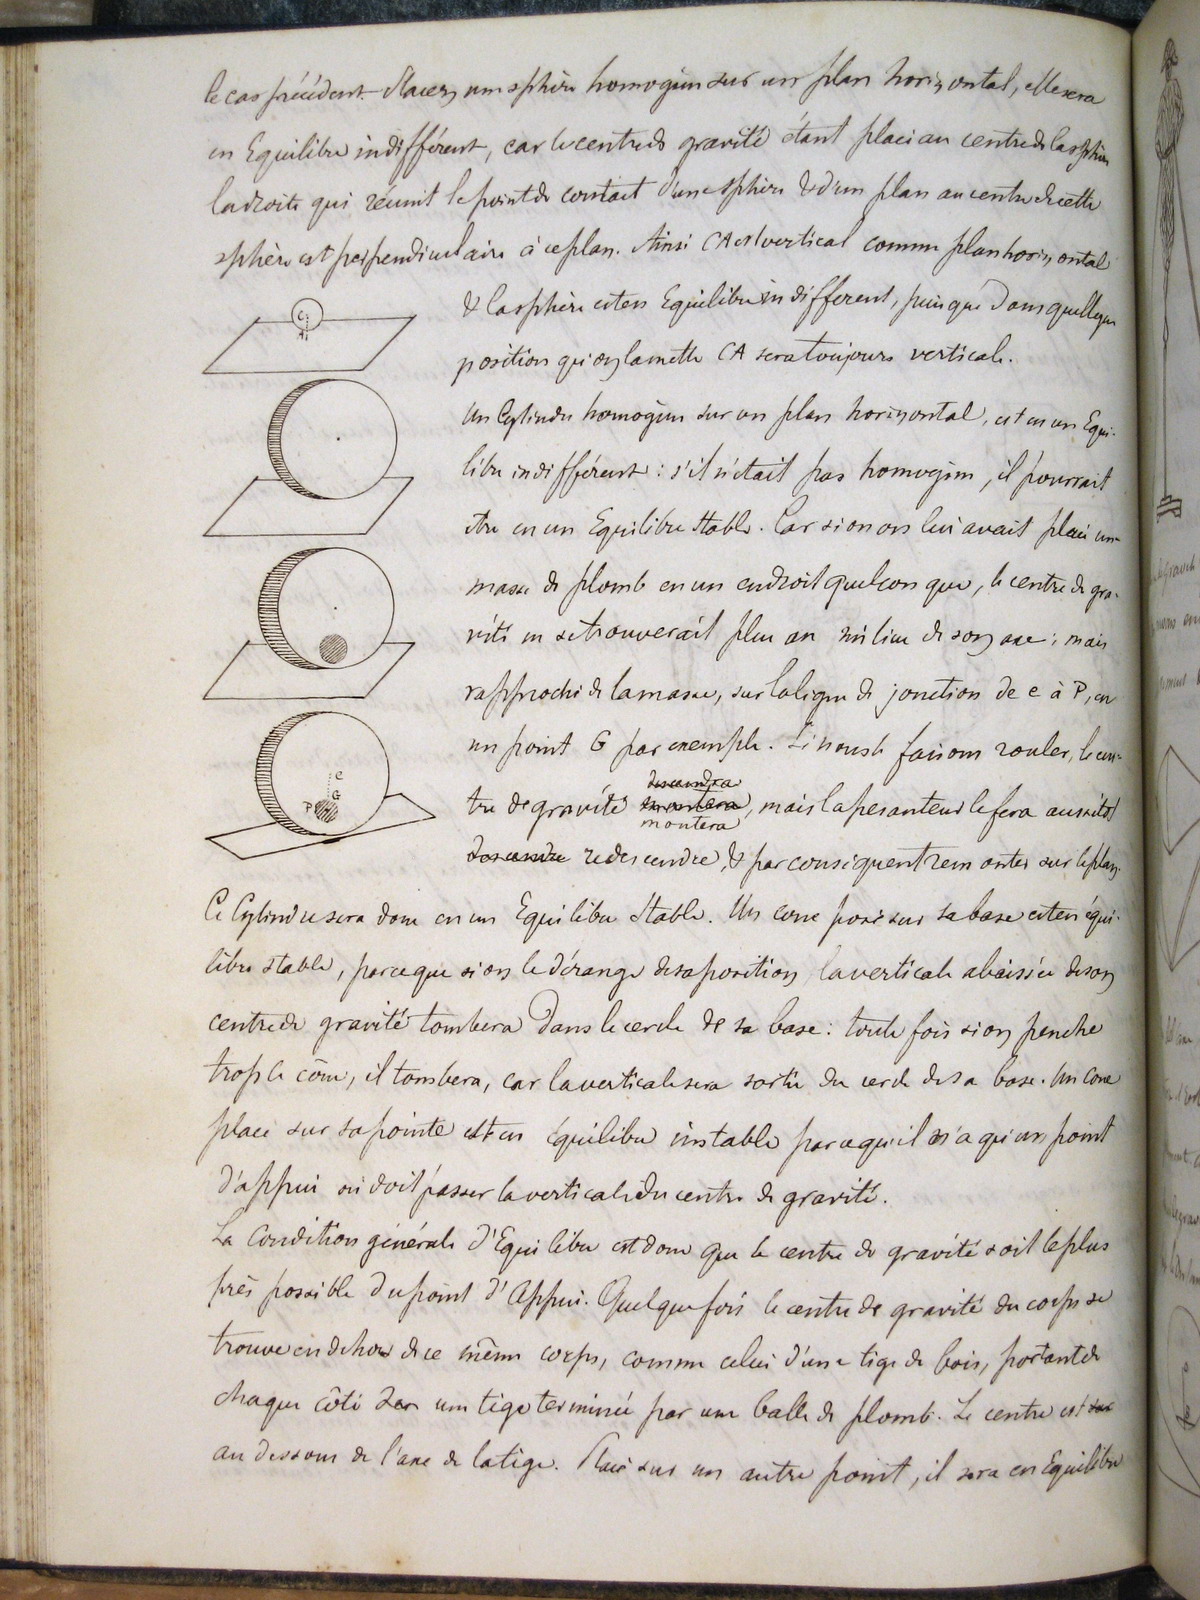 le cas précédent. Placez une sphère homogène sur un plan horizontal, elle sera
en Equilibre indifférent, car le centre de gravité étant placé au centre de la sphère
la droite qui réunit le point de contact d'une sphère & d'un plan au centre de cette
sphère est perpendiculaire à ce plan. Ainsi CA est vertical comme plan horizontal
& la sphère est en Equilibre indifférent, puisque dans quelque
position qu'on la mette CA sera toujours verticale.
C
A
Un Cylindre homogène sur un plan horizontal, est en un Equi-
libre indifférent : s'il n'était pas homogène, il pourrait
être en un Equilibre Stable. Car si on lui avait placé une
masse de plomb en un endroit quelconque, le centre de gra-
vité ne se trouverait plus au milieu de son axe ; mais
rapproché de la masse, sur la ligne de jonction de c à P, en
un point G par exemple. Si nous le faisons rouler, le cen-
descendra
tre de gravité montera, mais la pesanteur le fera aussitôt
montera
descendre redescendre, & par conséquent remonter sur le plan.
C
G
P
Ce Cylindre sera donc en un Equilibre Stable. Un cone posé sur sa base est en équi-
libre stable, parceque si on le dérange de sa position la verticale abaissée de son
centre de gravité tombera dans le cercle de sa base : toute fois si on penche
trop le cône, il tombera, car la verticale sera sortie du cercle de sa base. Un Cone
placé sur sa pointe est en équilibre instable parcequ'il n'a qu'un point
d'appui où doit passer la verticale du centre de gravité.
La Condition générale d'Equilibre est donc que le centre de gravité soit le plus
près possible du point d'Appui. Quelquefois le centre de gravité du corps se
trouve en dehors de ce même corps, comme celui d'une tige de bois, portant de
chaque côté une tige terminée par une balle de plomb. Le centre est
au dessous de l'axe de la tige. Placé sur un autre point, il sera en Equilibre